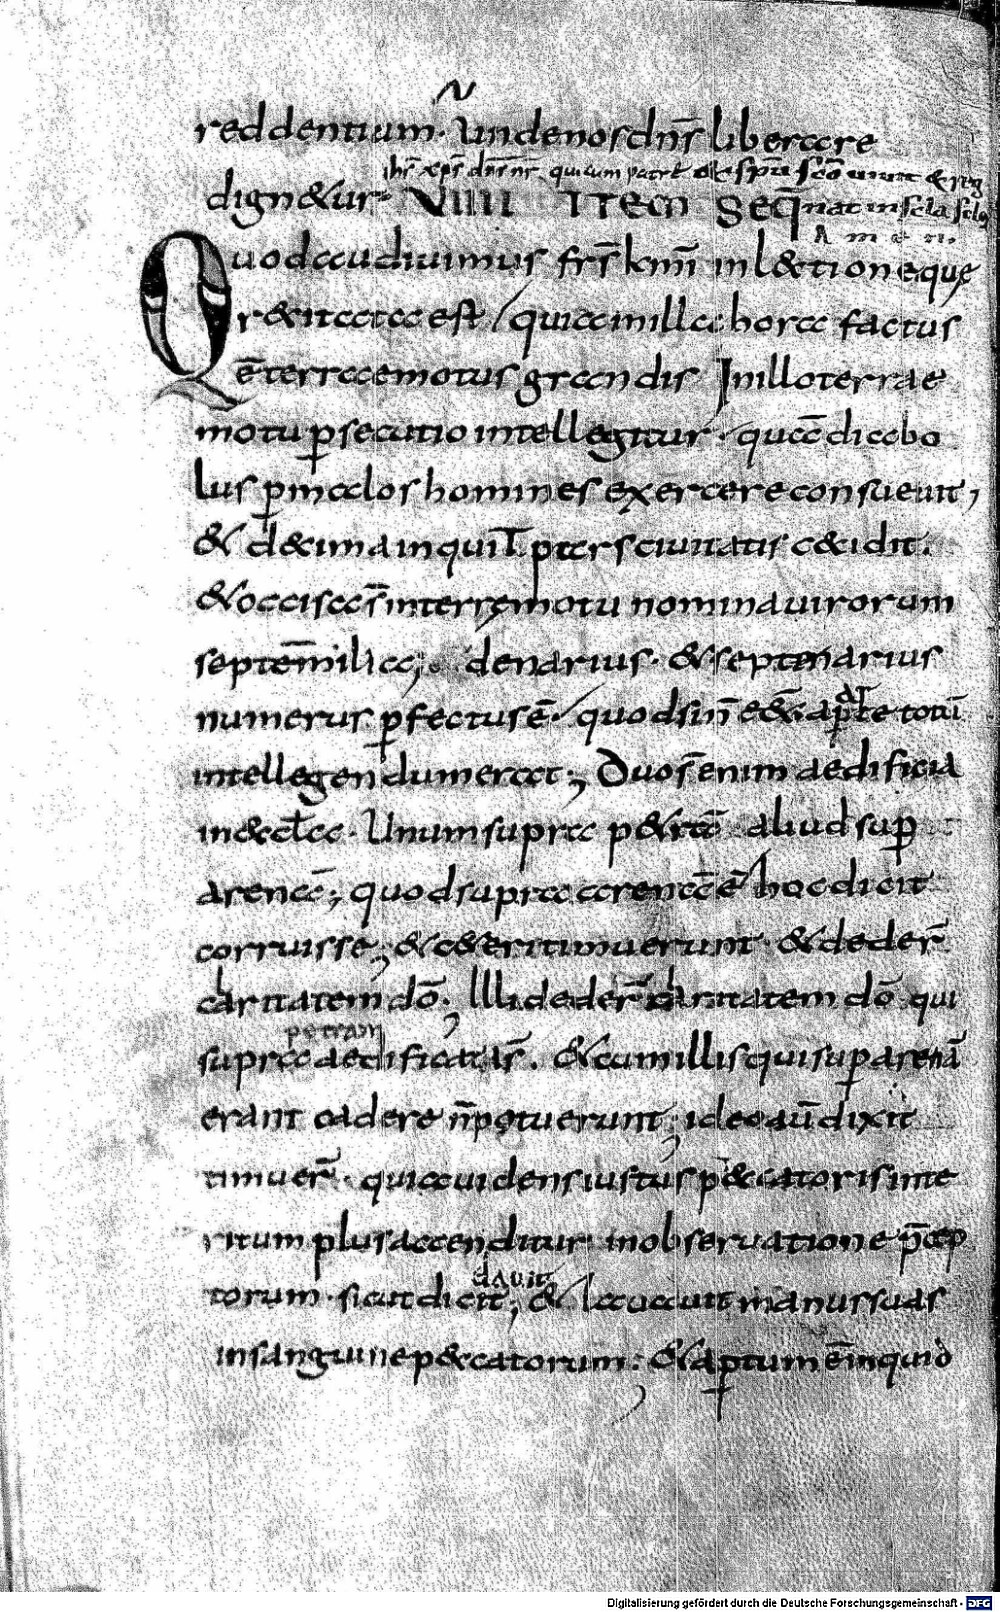 N
reddentium. Unde nos dn̄s liberare
ihs̄ xps̄ dns̄ nr̄ qui cum patrē & sp̄u sc̄o uiuit & reg
dign&ur VIIII ITEM SEQ̄ nat in scla sclo
Amen.
Quod audiuimus frs̄ km̄i in l&tione que
r&itata est, quia in illa hora factus
ē terrae motus grandis. In illo terrae
motu p̄secutio intellegitur, quā diabo
lus p̄ malos homines exercere consueuit,
& d&ima inquit pars ciuitatis c&idit.
& occisa s̄ in terręmotu nomina uirorum
septē milia; denarius. & septenarius
numerus p̄fectus ē. quod si n̄ e&̄ a parte totū
intellegendum erat; Duo s̄ enim aedificia
in &cla. Unum supra p&rā aliud sup̄
arenā; quod supra arenā ē hoc dicit
corruisse; & c&eri timuerunt. & dedeR̄
caritatem dō; Illi dedeR̄ claritatem dō qui
petram
supra aedificati s̄. & cum illis qui sup̄ arenā
erant cadere n̄ potuerunt; ideo aū dixit
timueR̄. quia uidens iustus p&catoris inte
ritum plus accenditur in obseruatione p̄cep
dauit
torum. sicut dicit; & lauauit manus suas
in sanguine p&catorum; & aptum ē inquid